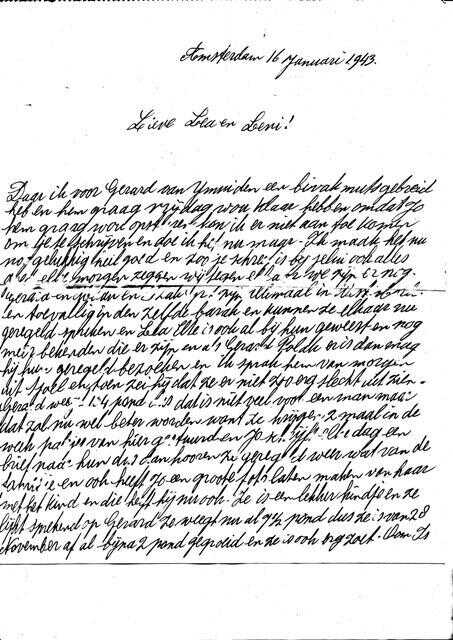 Amsterdam 16 Januari 1943.
Lieve Lea en Leni!
Daar ik voor Gerard van IJmuiden een bivakmuts gebreid
heb en hem graag vrijdag wou klaar hebben omdat Jo
hem graag word opst ren kon ik er niet aan toe komen
om je te schrijven en doe ik het nu maar. Ik maak het nu
nog gelukkig heel goed en zoo je schreef is bij jelui ook alles
morgen zeggen wij tegen we zijn er nog.
Gerard en zijn allemaal in
en toevallig in den zelfde barak en kunnen ze elkaar nu
geregeld spreken en Lea is ook al bij hun geweest en nog
meer bekenden die er zijn en als Gerard Polak er is dan mag
hij hun geregeld bezoeken en ik sprak hem van morgen
uit sjoel en toen zei hij dat ze er niet zoo erg slecht uit zien.
Gerard weegt 124 pond en dat is niet veel voor een man maar
dat zal nu wel beter worden want ze krijgen 2 maal in de
week pakjes van hier gestuurd en Jo schrijft elke dag een
brief naar hun dus dan hooren ze geregeld weer wat van de
en ook heeft Jo een groote foto laten maken van haar
met het kind en die heeft hij nu ook. Ze is een lekker kindje en ze
lijkt sprekend op Gerard ze weegt nu al 9½ pond dus ze is van 28
November af al bijna 2 pond gegroeid en ze is ook erg zoet. Oom Is